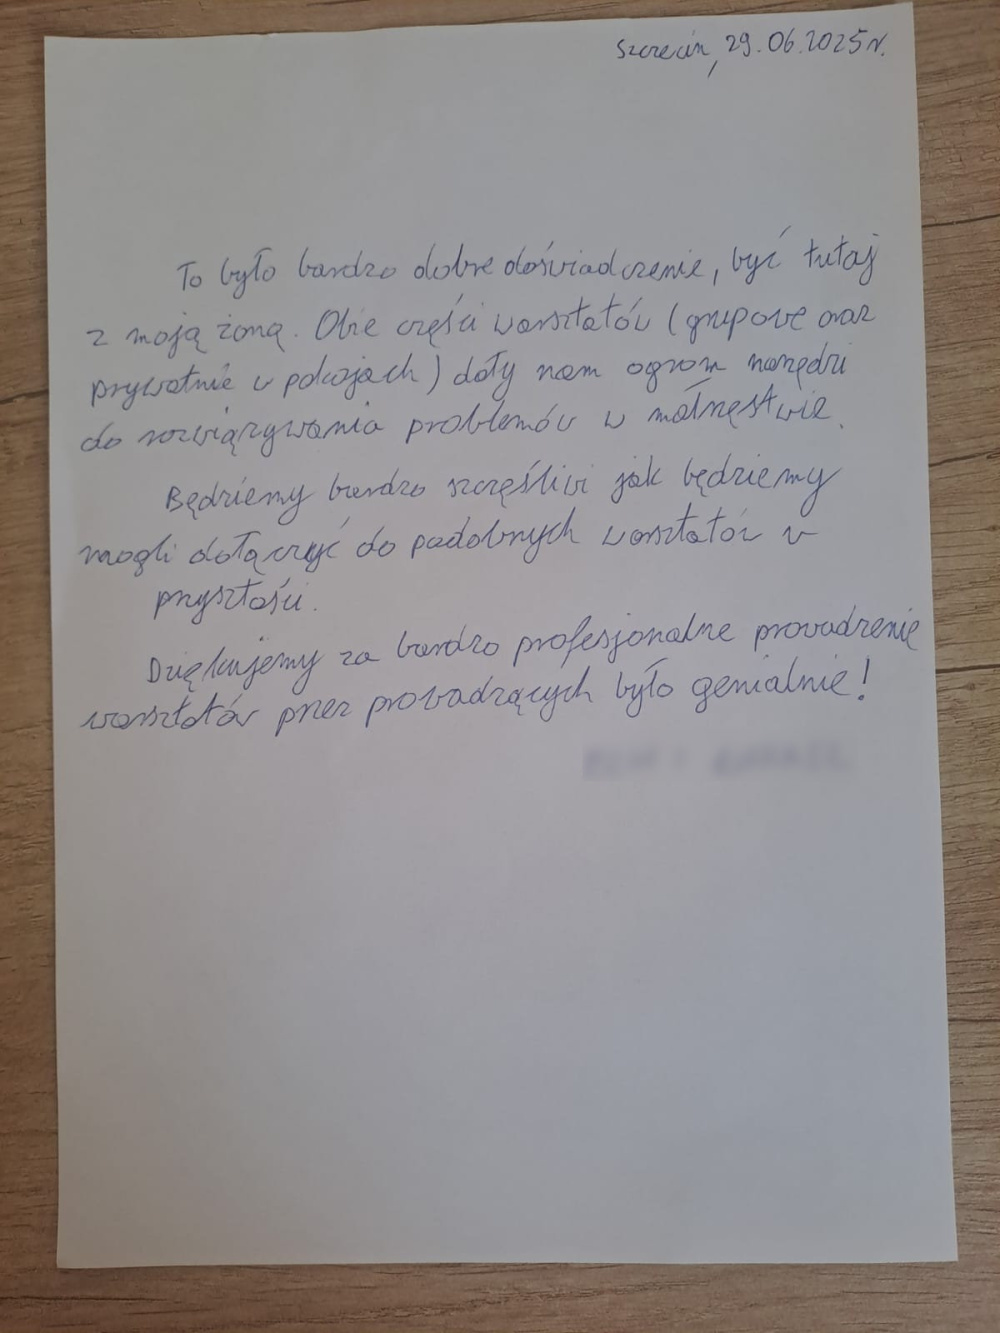 Szczecin, 29.06.2025r.
To było bardzo dobre doświadczenie, być tutaj
z moją żoną. Obie części warsztatów (grupowe oraz
prywatnie w pokojach) dały nam ogrom narzędzi
do rozwiązywania problemów w małżeństwie.
Będziemy bardzo szczęśliwi jak będziemy
mogli dołączyć do podobnych warsztatów w
przyszłości.
Dziękujemy za bardzo profesjonalne prowadzenie
warsztatów przez prowadzących było genialnie!